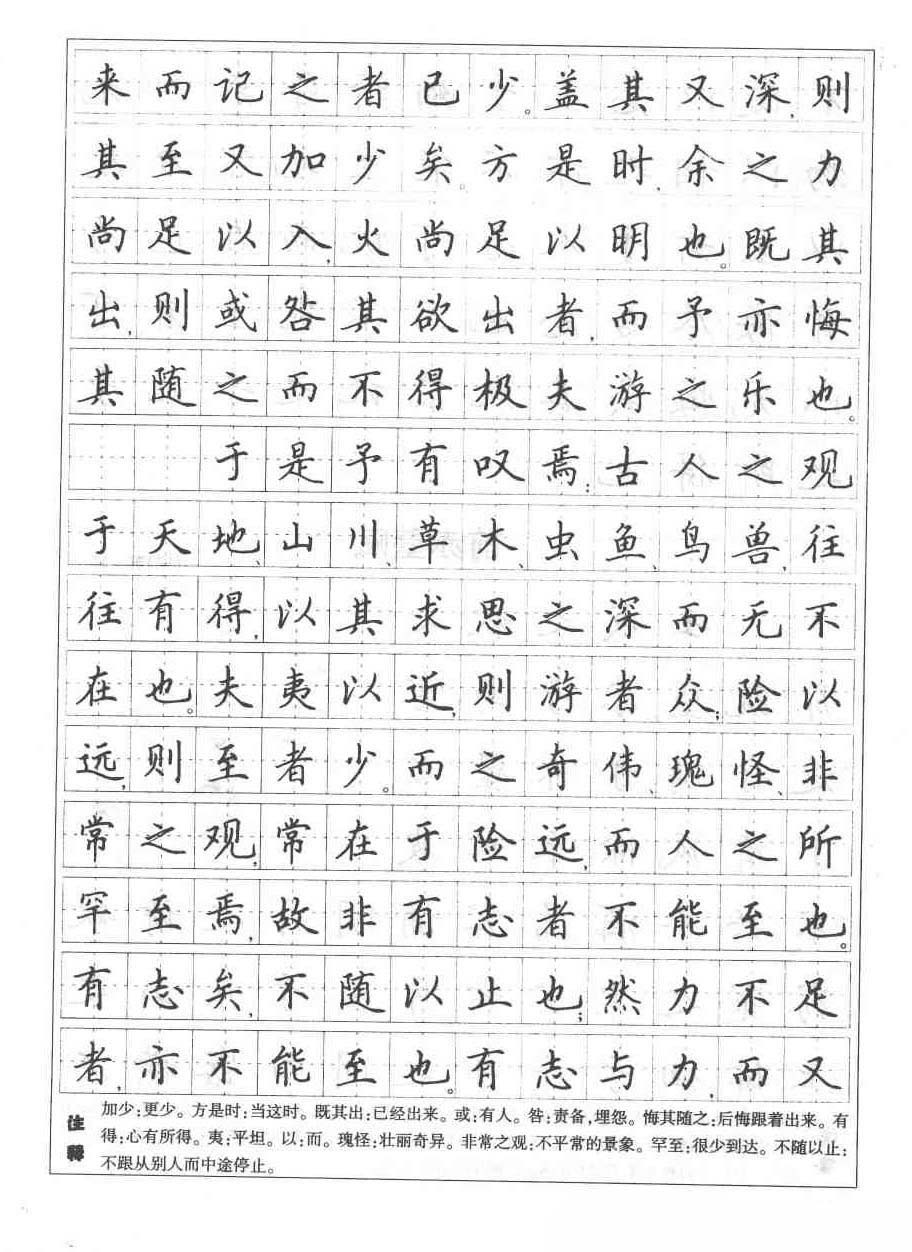 来而记之者已少。盖其又深,则
其至又加少矣。方是时,余之力
尚足以入,火尚足以明也。既其
出,则或咎其欲出者,而予亦悔
其随之而不得极夫游之乐也。
于是予有叹焉:古人之观
于天地、山川、草木、虫鱼鸟兽,往
往有得,以其求思之深而无不
在也。夫夷以近,则游者众;险以
远,则至者少。而之奇伟、瑰怪、非
常之观,常在于险远,而人之所
罕至焉,故非有志者不能至也。
有志矣,不随以止也;然力不足
者,亦不能至也。有志与力,而又
注释
加少:更少。方是时:当这时。既其出:已经出来。或:有人。咎:责备,埋怨。悔其随之:后悔跟着出来。有
得:心有所得。夷:平坦。以:而。瑰怪:壮丽奇异。非常之观:不平常的景象。罕至:很少到达。不随以止:
不跟从别人而中途停止。